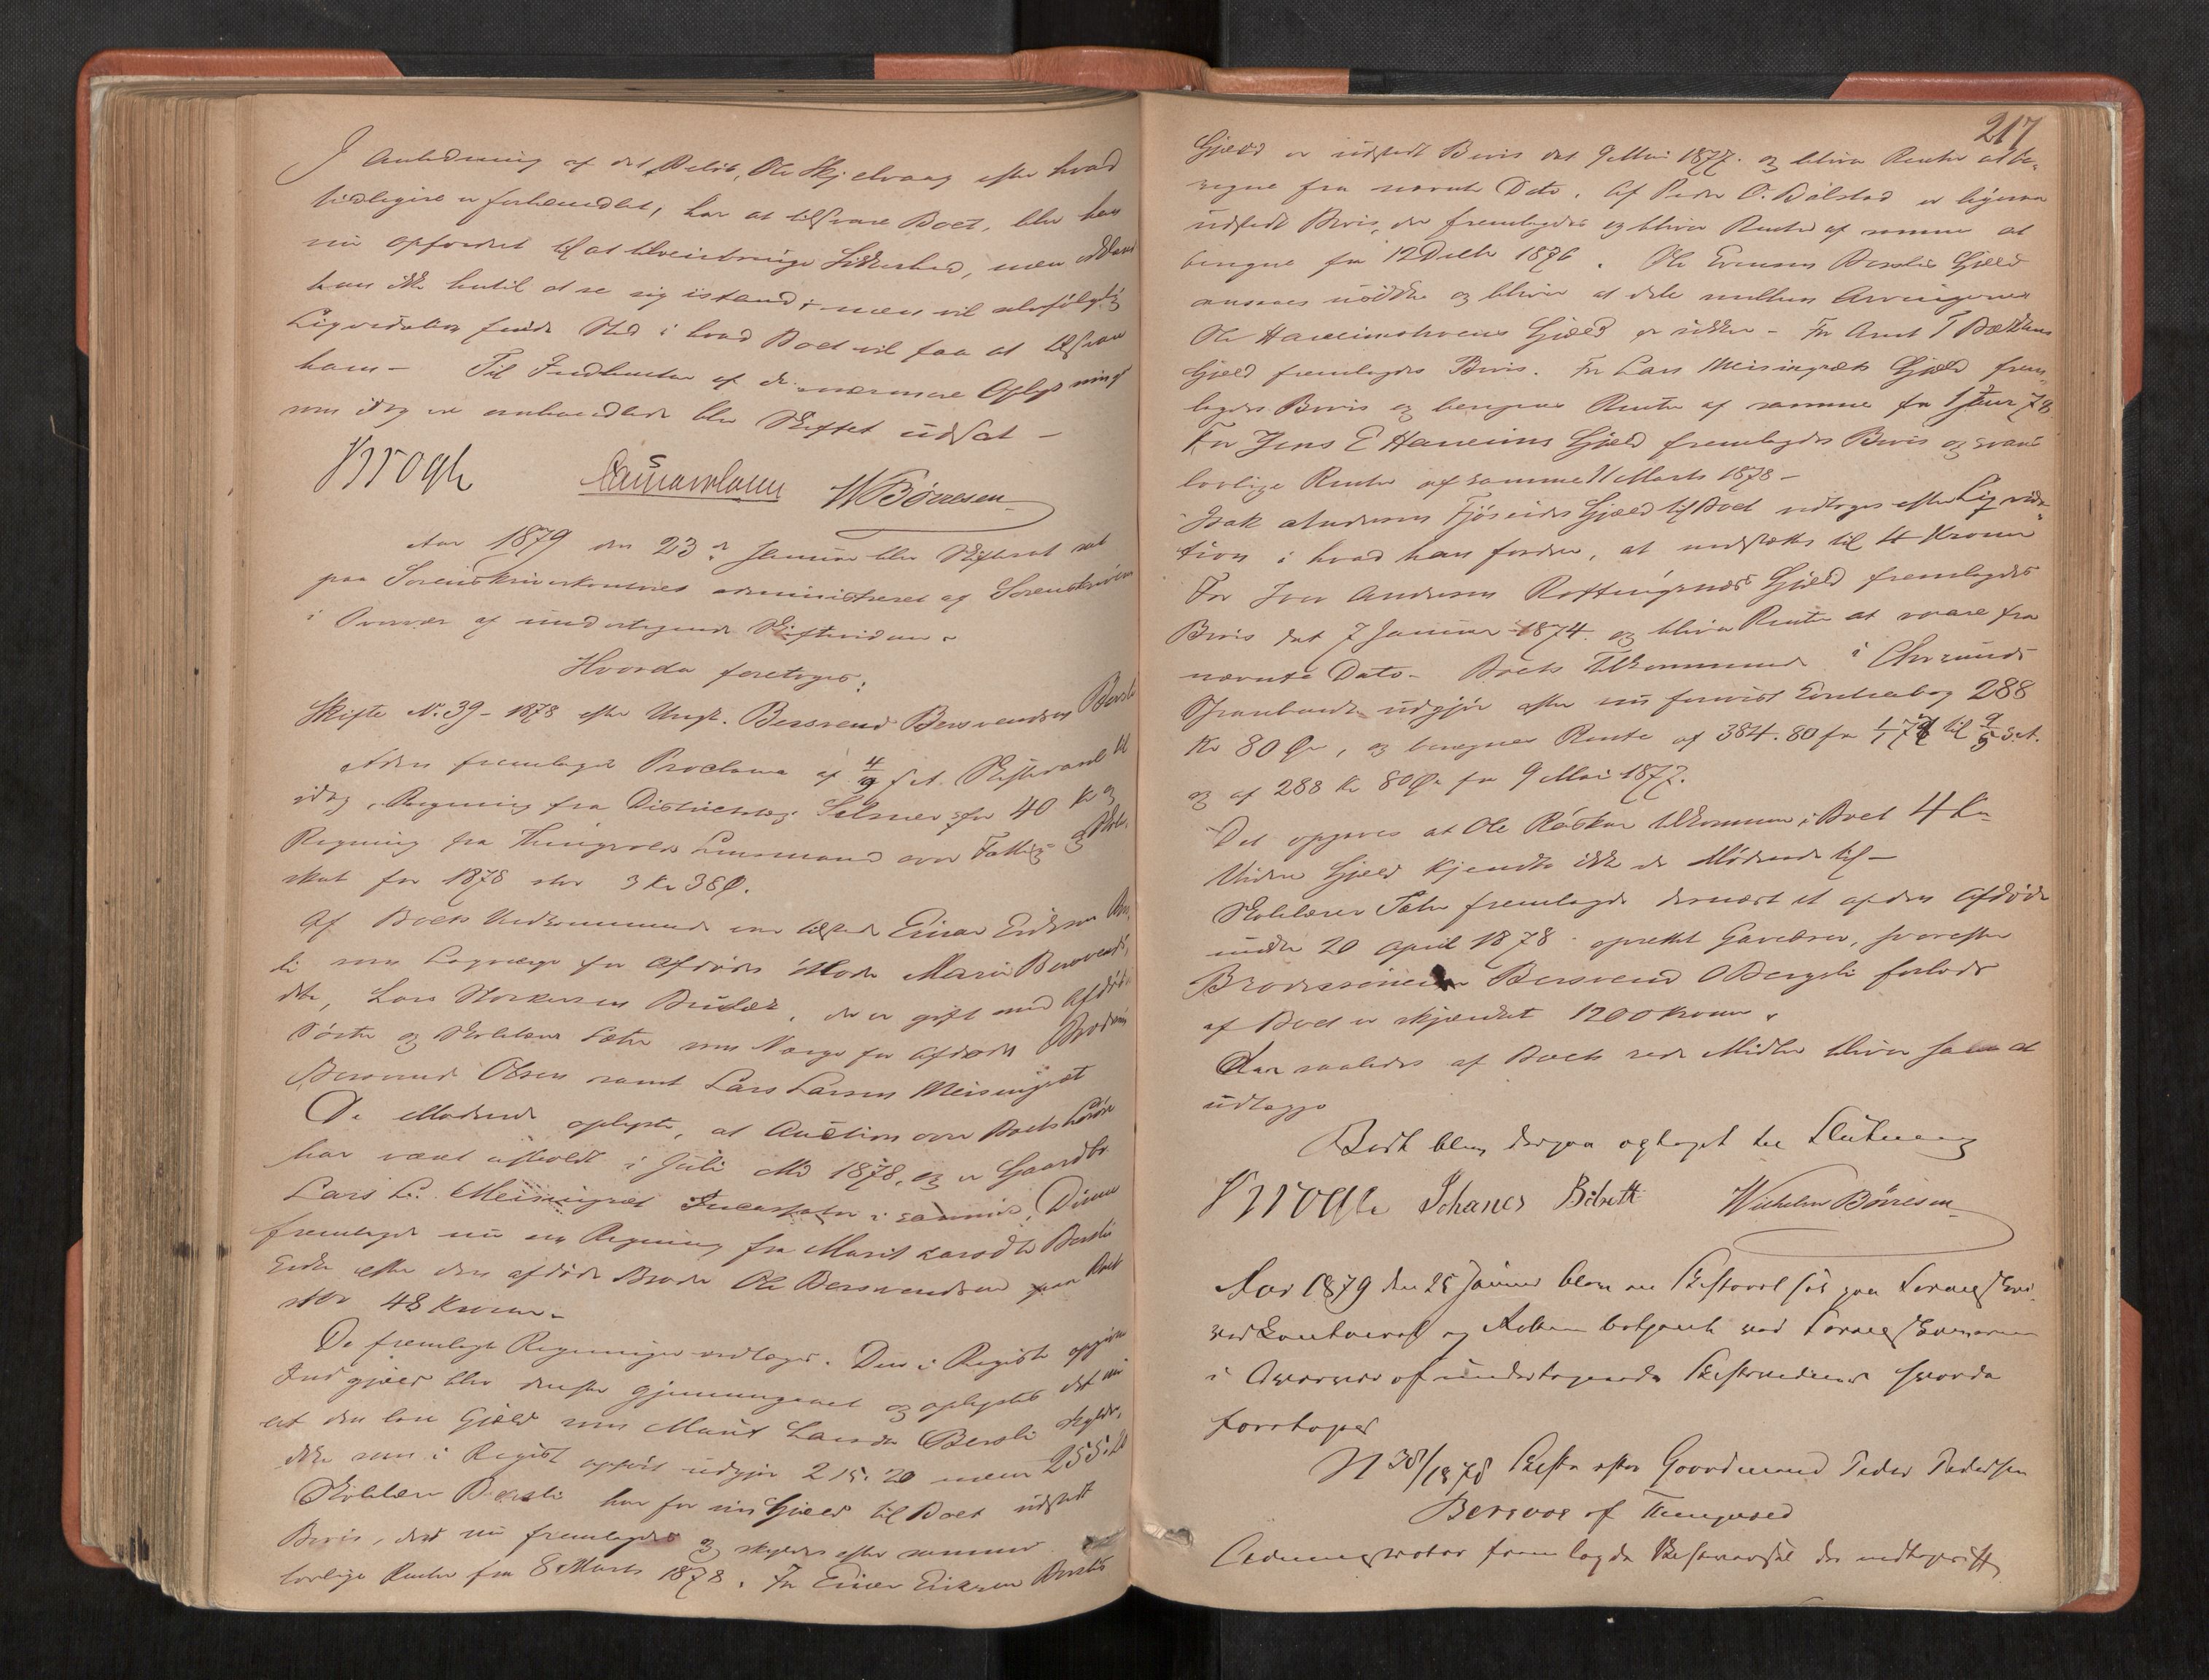 I Anledning af det Debit, Ole Skjelvaag efter hvad
tidligere er forhandlet, har at tilsvare Boet, blev han
nu opfordret til at tilveiebringe Sikkerhed, men
han ikke hertil at se sig istand, men vil
Liqvidation finde Sted i hvad Boet vil faa at tilsvare
ham - Til Indhentelse af de nærmere Oplysninger
som idag er omhandlede blev Skiftet udsat -
Krogh WBørresen
Aar 1879 den 23de Januar blev Skifteret sat
paa Sorenskriverkontoret administreret af Sorenskriveren
i Overvær af undertegnede Skiftevidner
Hvorda foretoges:
Skifte No. 39-1878 efter Ungk. Bersvend Bersvendsen Bersli
Adm fremlagde Proclama af 4/9 f.A. Skiftevarsel til
idag, Regning fra Districtslæge for 40 Kr og
Regning fra Thingvolds Lensmand over Fattig- og Skole-
skat for 1878 stor 3 Kr 38 Ø.
Af Boets Vedkommende var tilstede Einar Eriksen Bers-
li som Lagværge for Afdødes Moder Marit Bersvends-
dtr, Lars , der er gift med Afdødes
Søster og Skolelærer Sæter som Værge for Afdødes Brodersøn
Bersvend Olsen samt Lars Larsen Meisingset
De Mødende oplyste, at Auction over Boets Løsøre
har været afholdt i Juli Md 1878, og er Gaardbr
Lars L. Meisingset Incassator i samme. Denne
fremlagde nu en Regning fra Marit Larsdtr Bersli
Enke efter den afdøde Broder Ole Bersvendsen paa Boet
stor 48 Kroner.
De fremlagte Regninger vedtoges. Den i Registr opgivne
Indgjæld blev derefter gjennemgaaet og oplystes det nu
at den lave Gjæld som Marit Larsdtr Bersli skylder,
ikke som i Registr opført udgjør 215.20 men 255.20
Skolelærer Bersli har for sin Gjæld til Boet udstedt
Bevis, det nu fremlagdes og skyldes efter samme
lovlige Renter fra 8 Marts 1878. For Einar Eriksen Berslis
217
Gjæld er udstedt Bevis dat 9 Mai 1877. og bliver Renter at be-
regne fra nævnte Dato. Af Peder O. Bølstad er ligesaa
udstedt Bevis, der fremlagdes og bliver Renter af samme at
beregne fra 12 Decbr 1876. Ole Evensen Berslis Gjæld
ansaaes usikker og bliver at dele mellem Arvingerne
Ole Gjæld er sikker - For Arnt T
Gjæld fremlagdes Bevis. For Lars Meisingsets Gjæld frem-
lagdes Bevis og beregnes Renter af samme fra 1 Jan 78
For Jens E Haneims Gjæld fremlagdes Bevis og svares
lovlige Renter af samme 11 Marts 1878 -
Isak Andersen Fjøseides Gjæld til Boet vedtoges efter Liqvida-
tion i hvad han fordrer, at nedsættes til 4 Kroner
For Iver Andersen Røttingsnæs Gjæld fremlagdes
Bevis dat 7 Januar 1874. og bliver Renter at svare fra
nævnte Dato. Boets Tilkommende i Chrsunds
Sparebank udgjør efter nu forevist Contrabog 288
Kr 80 Øre, og beregnes Rente af 384.80 fra 1/1 77 til 9/5 s.A.
og af 288 Kr 80 Øre fra 9 Mai 1877.
Det opgaves at Ole Røskar tilkommer i Boet 4 Kr
Videre Gjæld kjendte ikke de Mødende til -
Skolelærer Sæter fremlagde dernæst et af den Afdøde
under 20 April 1878 oprettet Gavebrev, hvorefter
Brodersønnen Bersvend O Bergsli forlods
af Boet er skjænket 1200 Kroner.
der saaledes af Boets rede Midler bliver ham at
udlægge
Boet blev derpaa optaget til Slutning
Krogh Johanes Bølsett Wilhelm Børresen
Aar 1879 den 25 Januar blev en Skifteret sat paa Sorenskri-
verkontoret og Retten betjent ved Sorenskriveren
i Overvær af undertegnede Skiftevidner hvorda
foretoges
N 38/1878 Skifte efter Gaardmand Peder Pedersen
Bersaas af Thingvold
Administrator fremlagde Skiftevarsel der vedtoges